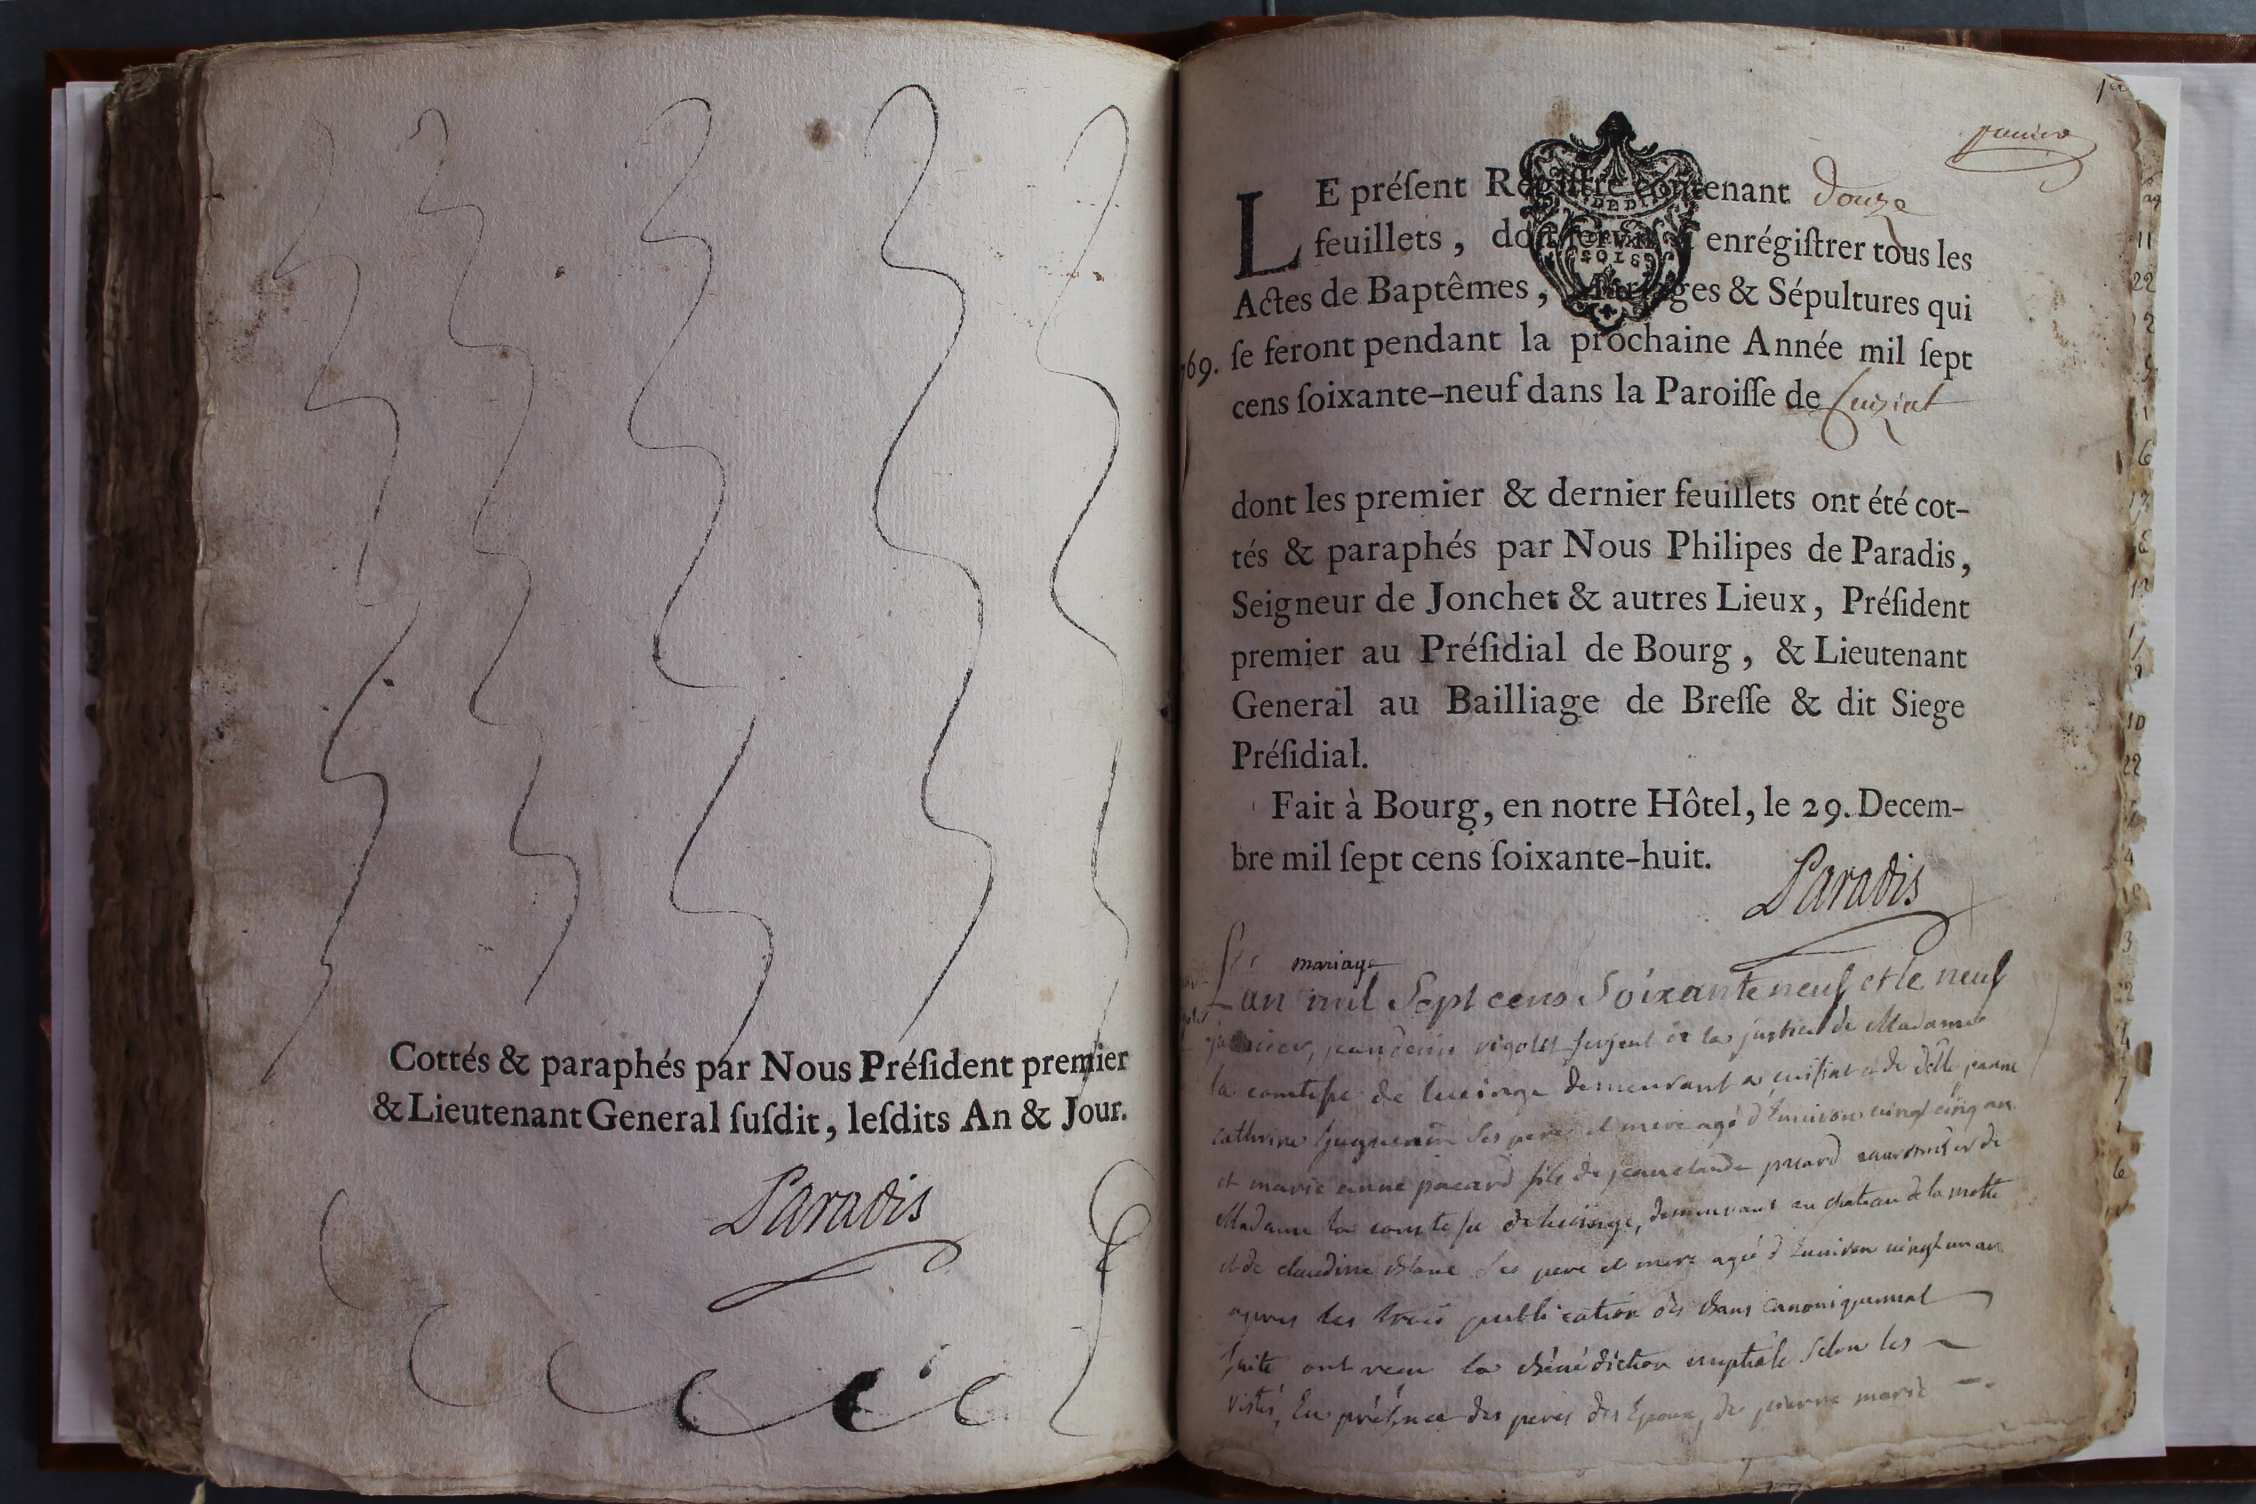 Cottés & paraphés par Nous Préſident premier
& Lieutenant General ſuſdit, leſdits An & Jour.
Paradis
1er
premier
LE préſent Regiſtre contenant douze
feuillets, enrégiſtrer tous les
Actes de Baptêmes, Mariages & Sépultures qui
769. ſe feront pendant la prochaine Année mil ſept
cens ſoixante-neuf dans la Paroiſſe de Cuiziat
dont les premier & dernier feuillets ont été cot-
tés & paraphés par Nous Philipes de Paradis,
Seigneur de Jonchet & autres Lieux, Préſident
premier au Préſidial de Bourg, & Lieutenant
General au Bailliage de Breſſe & dit Siege
Préſidial.
Fait à Bourg, en notre Hôtel, le 29. Decem-
bre mil ſept cens ſoixante-huit.
Paradis
mariage
L'an mil Sept cens Soixante neuf et le neuf
janvier, jean denis rigolet sergent de la justice de Madame
la comtesse de lucinge demeurant a cuisiat et de jeanne
cathrine huguenin ses pere et mere agé d'environ vingt cinq an
et marie anne pacard file de jean claude pacard de
Madame la comtesse de lucinge, demeurant au chateau de la motte
et de claudine ses pere et mere agé d'environ vingt un an
apres les trois publication des bans canoniquement
faite ont recu la bénédiction nuptiale selon les
En présence des peres des Epoux, de pierre marie